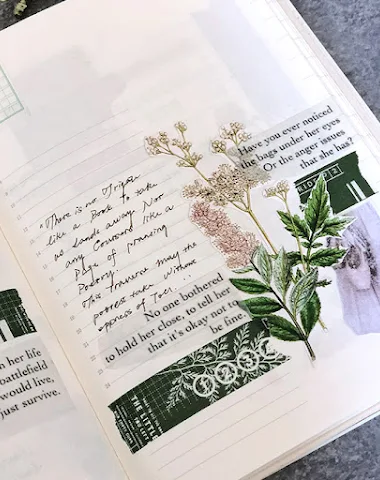 Have you ever noticed
the bags under her eyes
Or the anger issues
that she has?
"There is no Frigate
like a Book to take
us Lands away Nor
any Coursers like a
Page of prancing
Poetry.
This Traverse may the
poorest take without
oppress of Toll...
No one bothered
to hold her close, to tell her
that it's okay not to
be fine.
1 2 3
THE LITTLE
her life
battlefield
would live,
just survive.